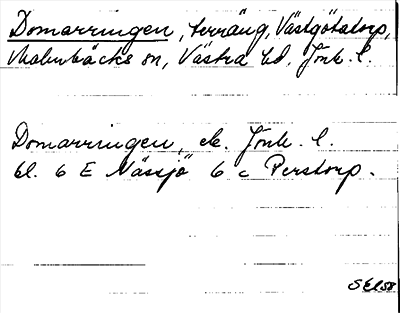 Domarringen, terräng, Västgötatorp,
Malmbäcks sn, Västra hd. Jönk. l.
Domarringen, ek. Jönk. l.
bl. 6 E Nässjö 6 c Perstorp.